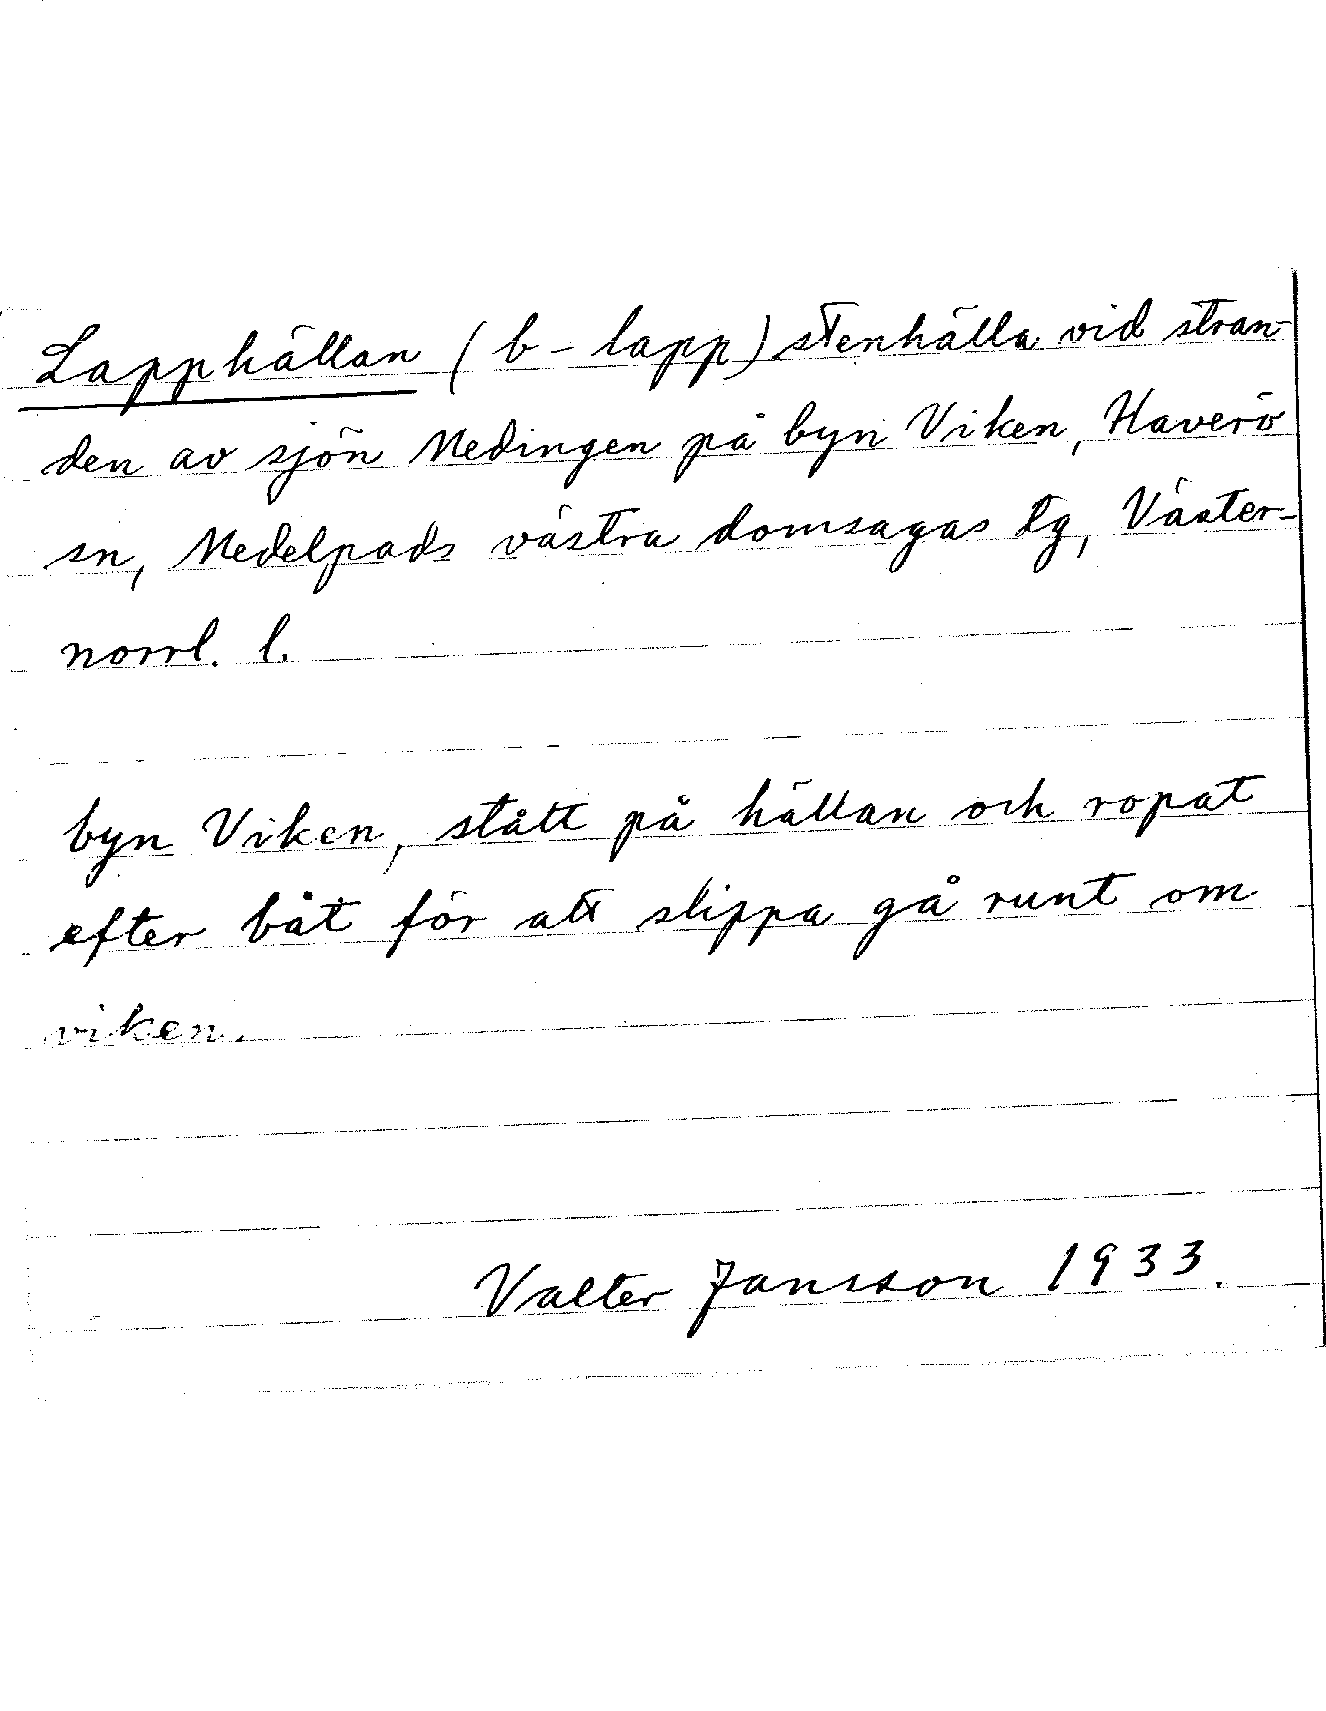 Lapphällan (b-lapp) stenhälla vid stran-
den av sjön Medingen på byn Viken, Haverö
sn, Medelpads västra domsagas tg, Väster-
norrl. l.
byn Viken, stått på hällan och ropat
efter båt för att slippa gå runt om
viken.
Valter Jansson 1933.